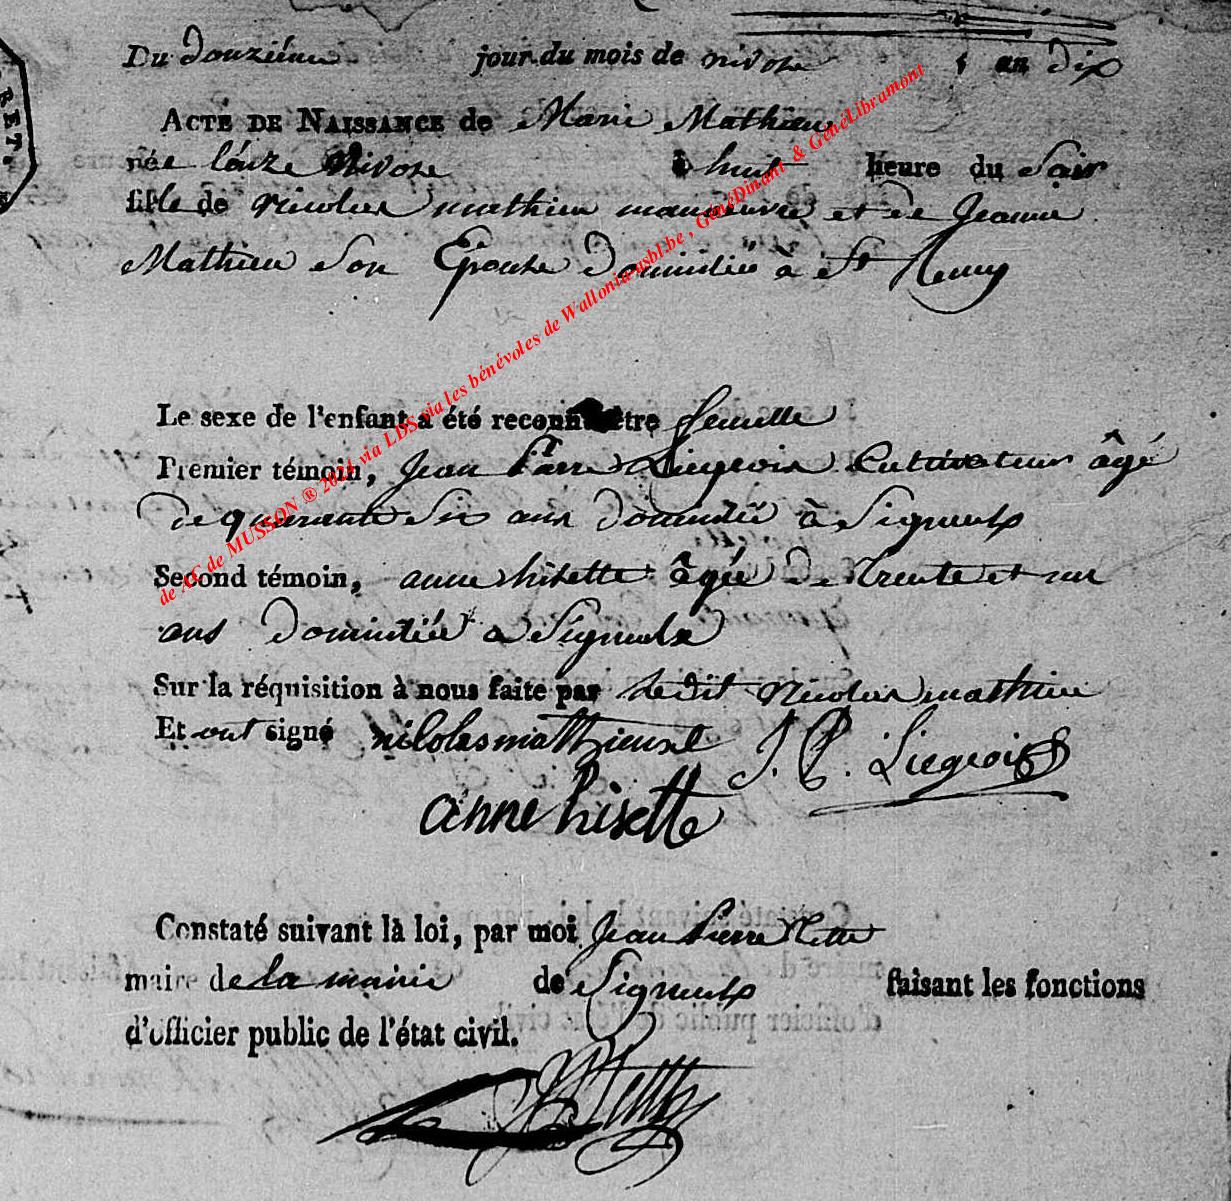 Du douziéme jour du mois de nivose an dix
ACTE DE NAISSANCE de Marie Mathieu
née l'onze Nivose à huit heure du Soir
fille de Nicolas mathieu manoeuvre et de Jeanne
Mathieu Son Epouse Domiciliée à St Remy
Le sexe de l'enfant a été reconnu être femelle
Premier témoin, Jean Pierre Liegeois Cultivateur âgé
de quarante Six ans domicilié à Signeulx
Second témoin, anne hisette âgée de trente et un
ans Domiciliée a Signeulx
Sur la réquisition à nous faite par Ledit Nicolas mathieu
Et ont signé nilolas mathieu J. P. Liegeois
anne hisette
Constaté suivant là loi, par moi Jean Pierre
maire de la mairie de Signeulx faisant les fonctions
d'officier public de l'état civil.
de AC de MUSSON ® 2021 via LDS via les bénévoles de Wallonia-asbl.be , GénéDinant & GénéLibramont